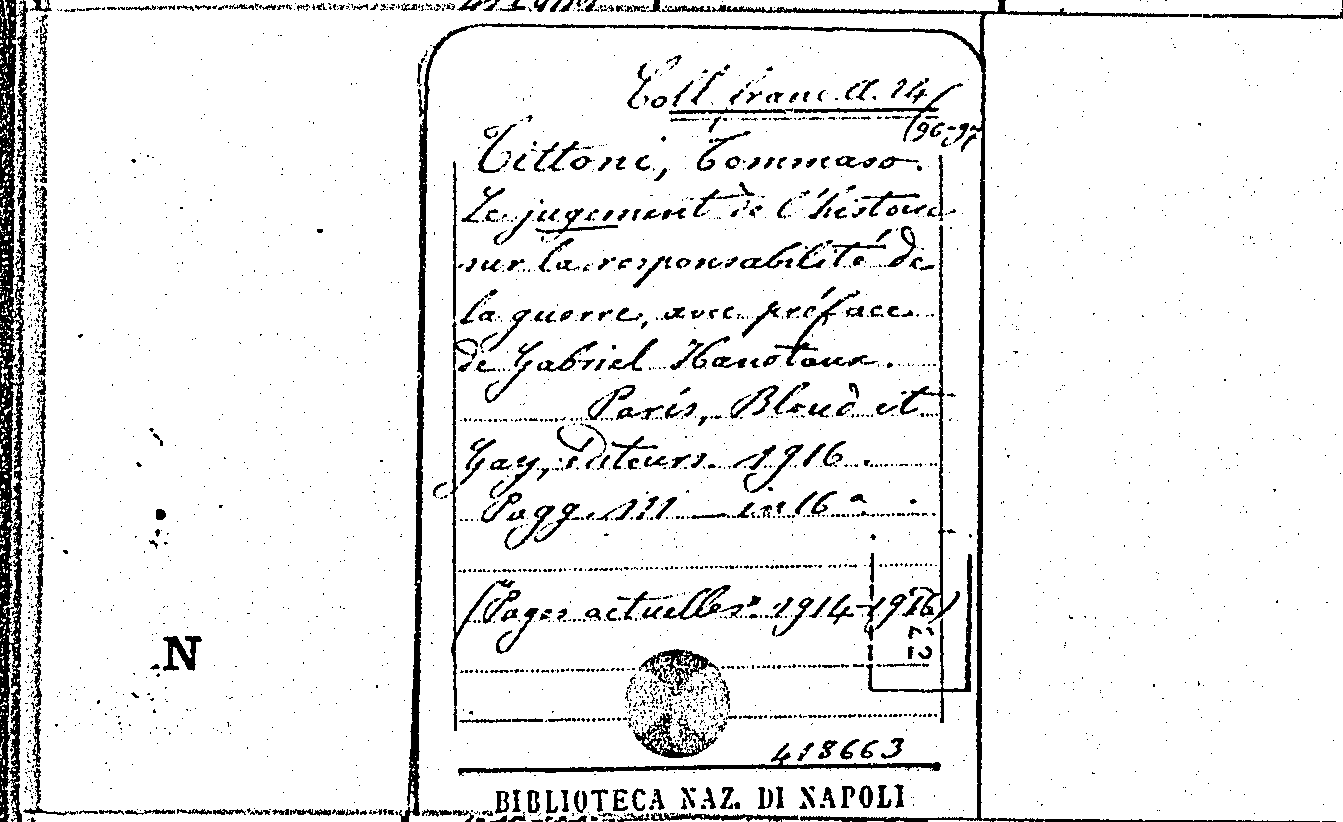 Coll. franc. A. 24/
(96-97
Tittoni, Tommaso.
Le jugement de l'histoire
sur la responsabilité de
la guerre, avec préface
de Gabriel Hanotaux.
Paris, Bloud et
Gay, éditeurs. 1916.
Pagg. 111 — in 16°.
("Pages actuelles" 1914-1916)
N
418663
BIBLIOTECA NAZ. DI NAPOLI